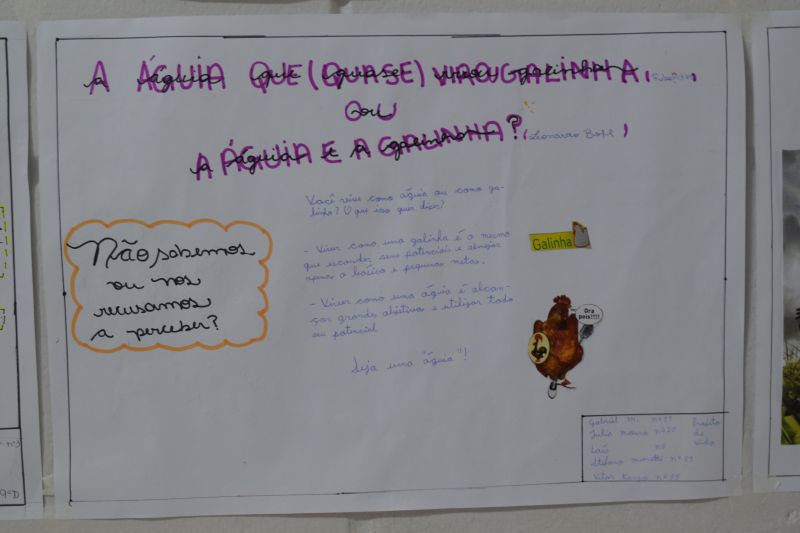 A ÁGUIA QUE (QUASE) VIROU GALINHA,
OU
A ÁGUIA E A GALINHA? (Leonardo Boff)
Você vive como águia ou como ga-
linha? O que isso quer dizer?
Não sabemos
ou nos
recusamos
a perceber?
- Viver como uma galinha é o mesmo
que esconder seus potenciais e almejar
apenas o básico e pequenas metas.
- Viver como uma águia é alcan-
çar grandes objetivos e utilizar todo
seu potencial
Seja uma "águia"!
Galinha
Ora
pois!!!!
Gabriel M. nº 11
Julia nº 20
Projeto
de
Vida
Laís nº
Stefano moretti nº
Vitor nº 35
9ºD